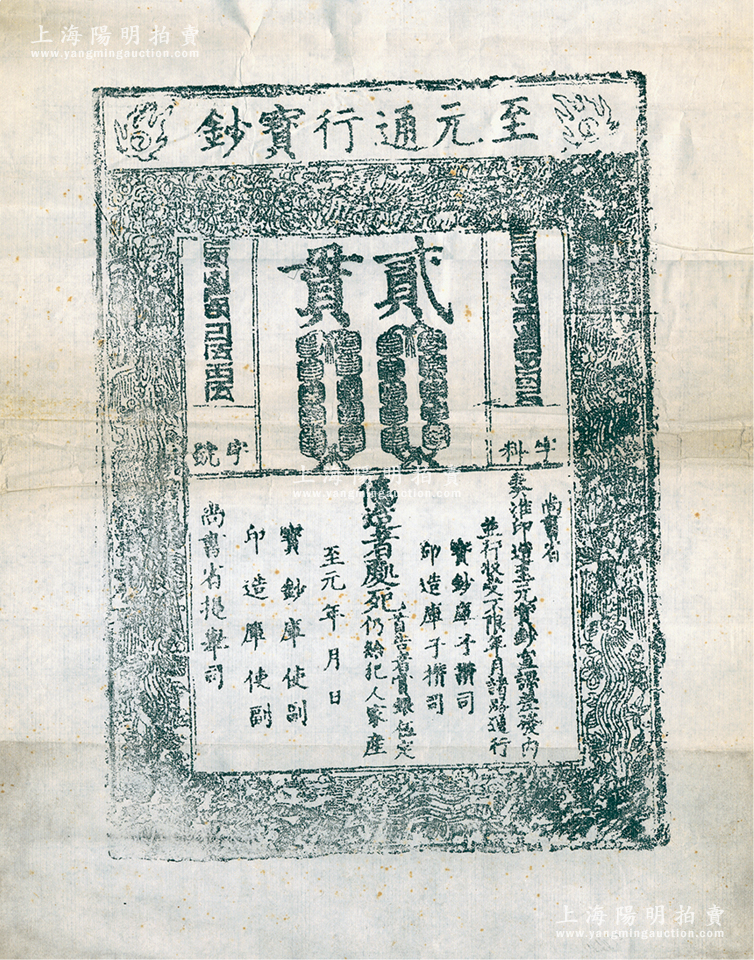 上海陽明拍賣
www.yangmingauction.com
至元通行寶鈔
貳貫
字料
字號
尚書省
奏准印造至元寶鈔宣課差發內
並行收受不限年月諸路通行
寶鈔庫子攢司
印造庫子攢司
偽造者處死
首告者賞銀伍定
仍給犯人家產
至元年月日
寶鈔庫使副
印造庫使副
尚書省提舉司
上海陽明拍賣
www.yangmingauction.com
上海陽明拍賣
www.yangmingauction.com